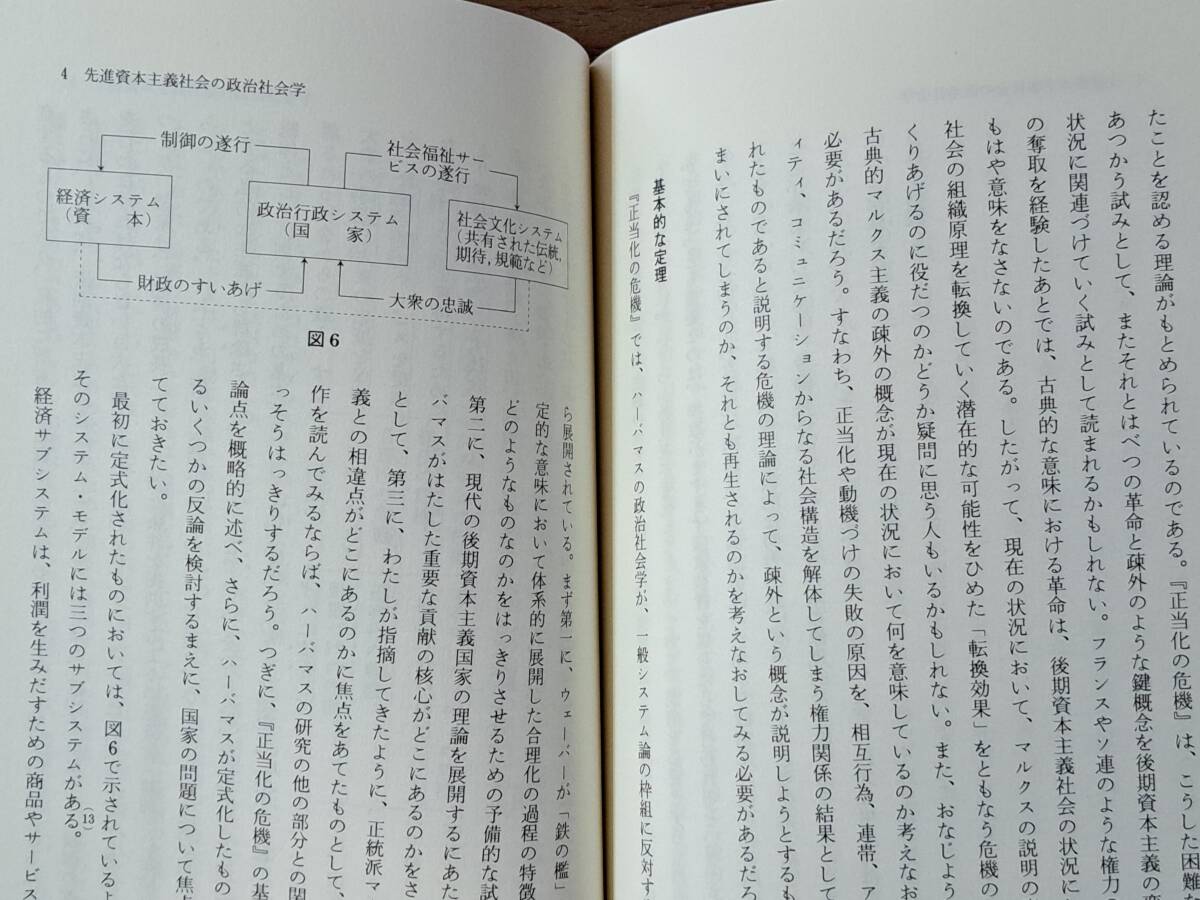 たことを認める理論がもとめられているのである。『正当化の危機』は、こうした困難な
あつかう試みとして、またそれとはべつの革命と疎外のような鍵概念を後期資本主義の変
状況に関連づけていく試みとして読まれるかもしれない。フランスやソ連のような権力
の奪取を経験したあとでは、古典的な意味における革命は、後期資本主義社会の状況に
もはや意味をなさないのである。したがって、現在の状況において、マルクスの説明の
社会の組織原理を転換していく潜在的な可能性をひめた「転換効果」をともなう危機の
くりあげるのに役だつのかどうか疑問に思う人もいるかもしれない。また、おなじよう
古典的マルクス主義の疎外の概念が現在の状況において何を意味しているのか考えなお
必要があるだろう。すなわち、正当化や動機づけの失敗の原因を、相互行為、連帯、ア
ィティ、コミュニケーションからなる社会構造を解体してしまう権力関係の結果として
れたものであると説明する危機の理論によって、疎外という概念が説明しようとするも
まいにされてしまうのか、それとも再生されるのかを考えなおしてみる必要があるだろ
基本的な定理
『正当化の危機』では、ハーバマスの政治社会学が、一般システム論の枠組に反対す
4 先進資本主義社会の政治社会学
制御の遂行
社会福祉サー
ビスの遂行
経済システム
(資 本)
政治行政システム
(国 家)
社会文化システム
(共有された伝統,
期待,規範など)
財政のすいあげ
大衆の忠誠
図6
ら展開されている。まず第一に、ウェーバーが「鉄の檻」
定的な意味において体系的に展開した合理化の過程の特徴
どのようなものなのかをはっきりさせるための予備的な試
第二に、現代の後期資本主義国家の理論を展開するにあた
バマスがはたした重要な貢献の核心がどこにあるのかをさ
として、第三に、わたしが指摘してきたように、正統派マ
義との相違点がどこにあるのかに焦点をあてたものとして、
作を読んでみるならば、ハーバマスの研究の他の部分との関
っそうはっきりするだろう。つぎに、『正当化の危機』の基
論点を概略的に述べ、さらに、ハーバマスが定式化したもの
るいくつかの反論を検討するまえに、国家の問題について焦
てておきたい。
最初に定式化されたものにおいては、図6で示されているよ
そのシステム・モデルには三つのサブシステムがある。(13)
経済サブシステムは、利潤を生みだすための商品やサービス